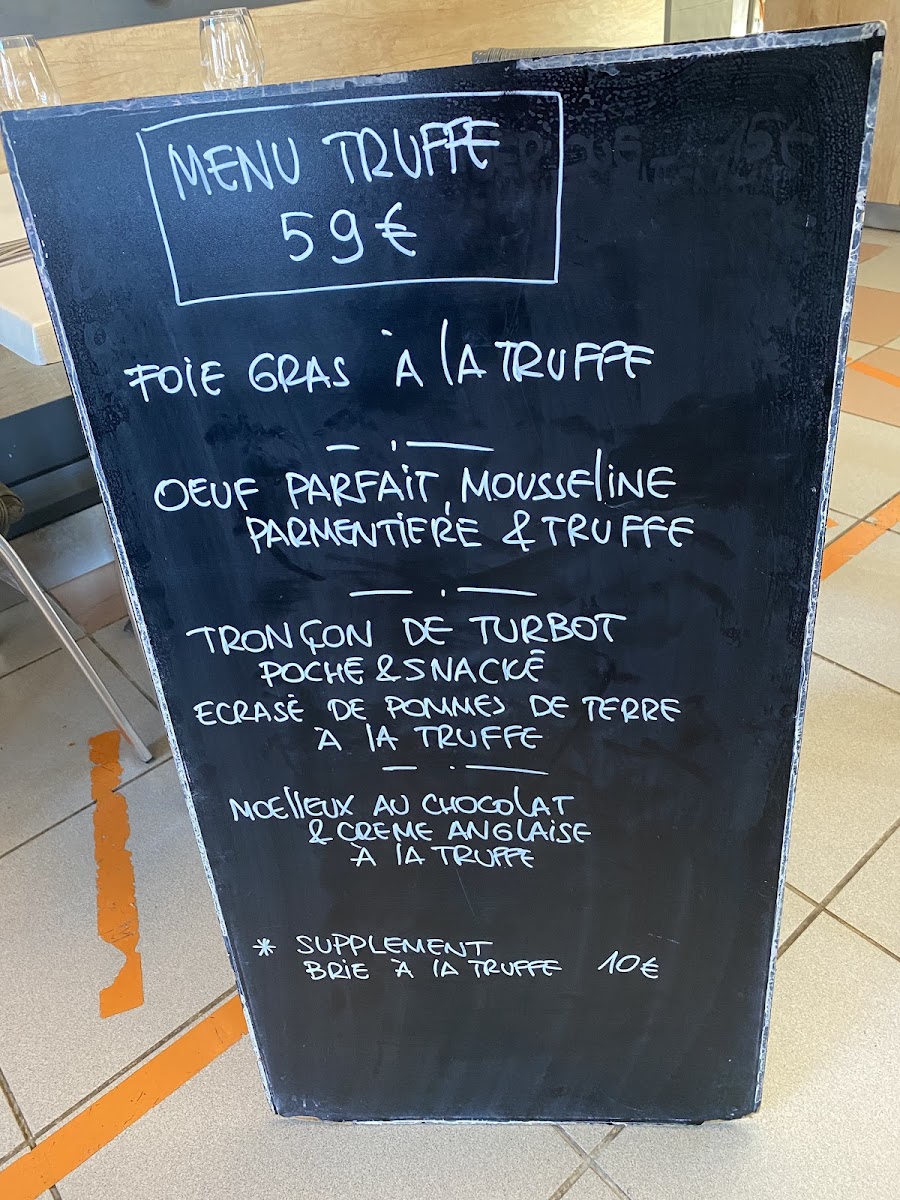 MENU TRUFFE
59€
FOIE GRAS À LA TRUFFE
OEUF PARFAIT, MOUSSELINE
PARMENTIERE & TRUFFE
TRONÇON DE TURBOT
POCHE & SNACKÉ
ECRASÉ DE POMMES DE TERRE
À LA TRUFFE
MOELLEUX AU CHOCOLAT
& CREME ANGLAISE
À LA TRUFFE
* SUPPLEMENT
BRIE À LA TRUFFE 10€